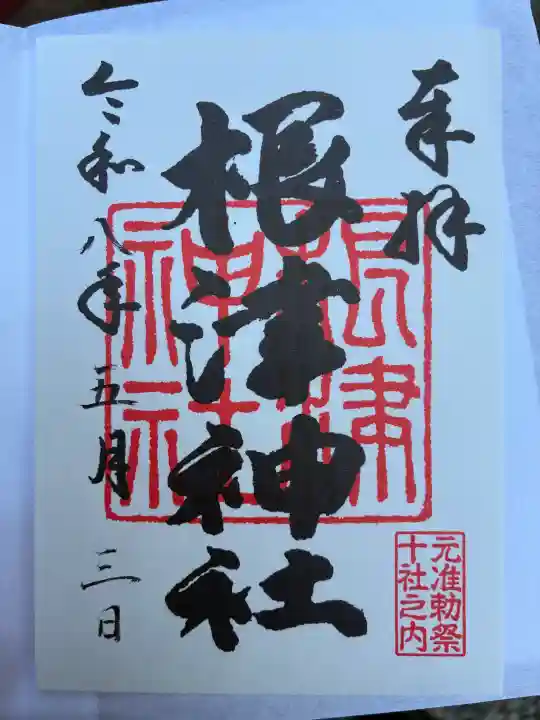 奉拝
根津神社
根津神社
元准勅祭
十社之内
令和八年五月三日